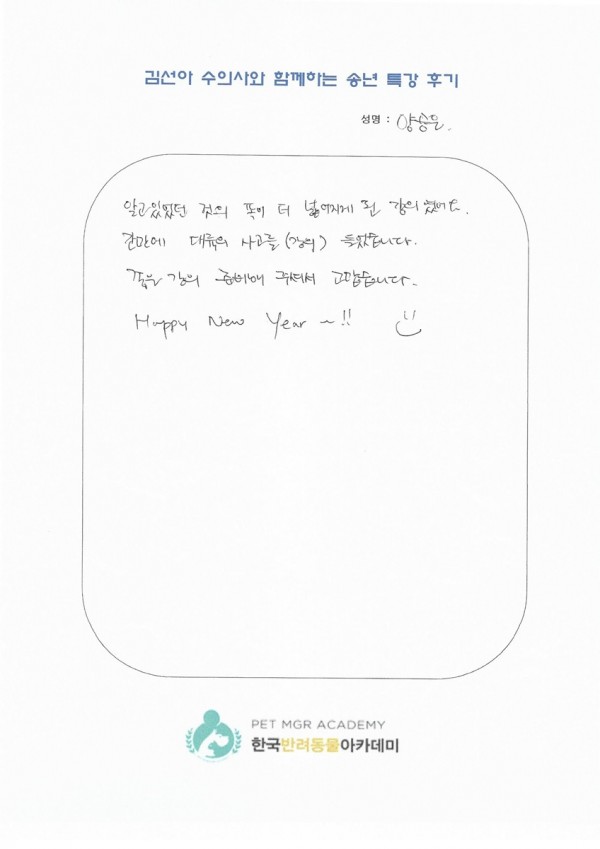 김선아 수의사와 함께하는 송년 특강 후기
성명 : 양승은.
알고있었던 것의 폭이 더 넓어지게 된 강의였어요.
간만에 대륙의 사고를 (강의) 들었습니다.
좋은 강의 준비해 주셔서 고맙습니다.
Happy New Year ~!!
PET MGR ACADEMY
한국반려동물아카데미